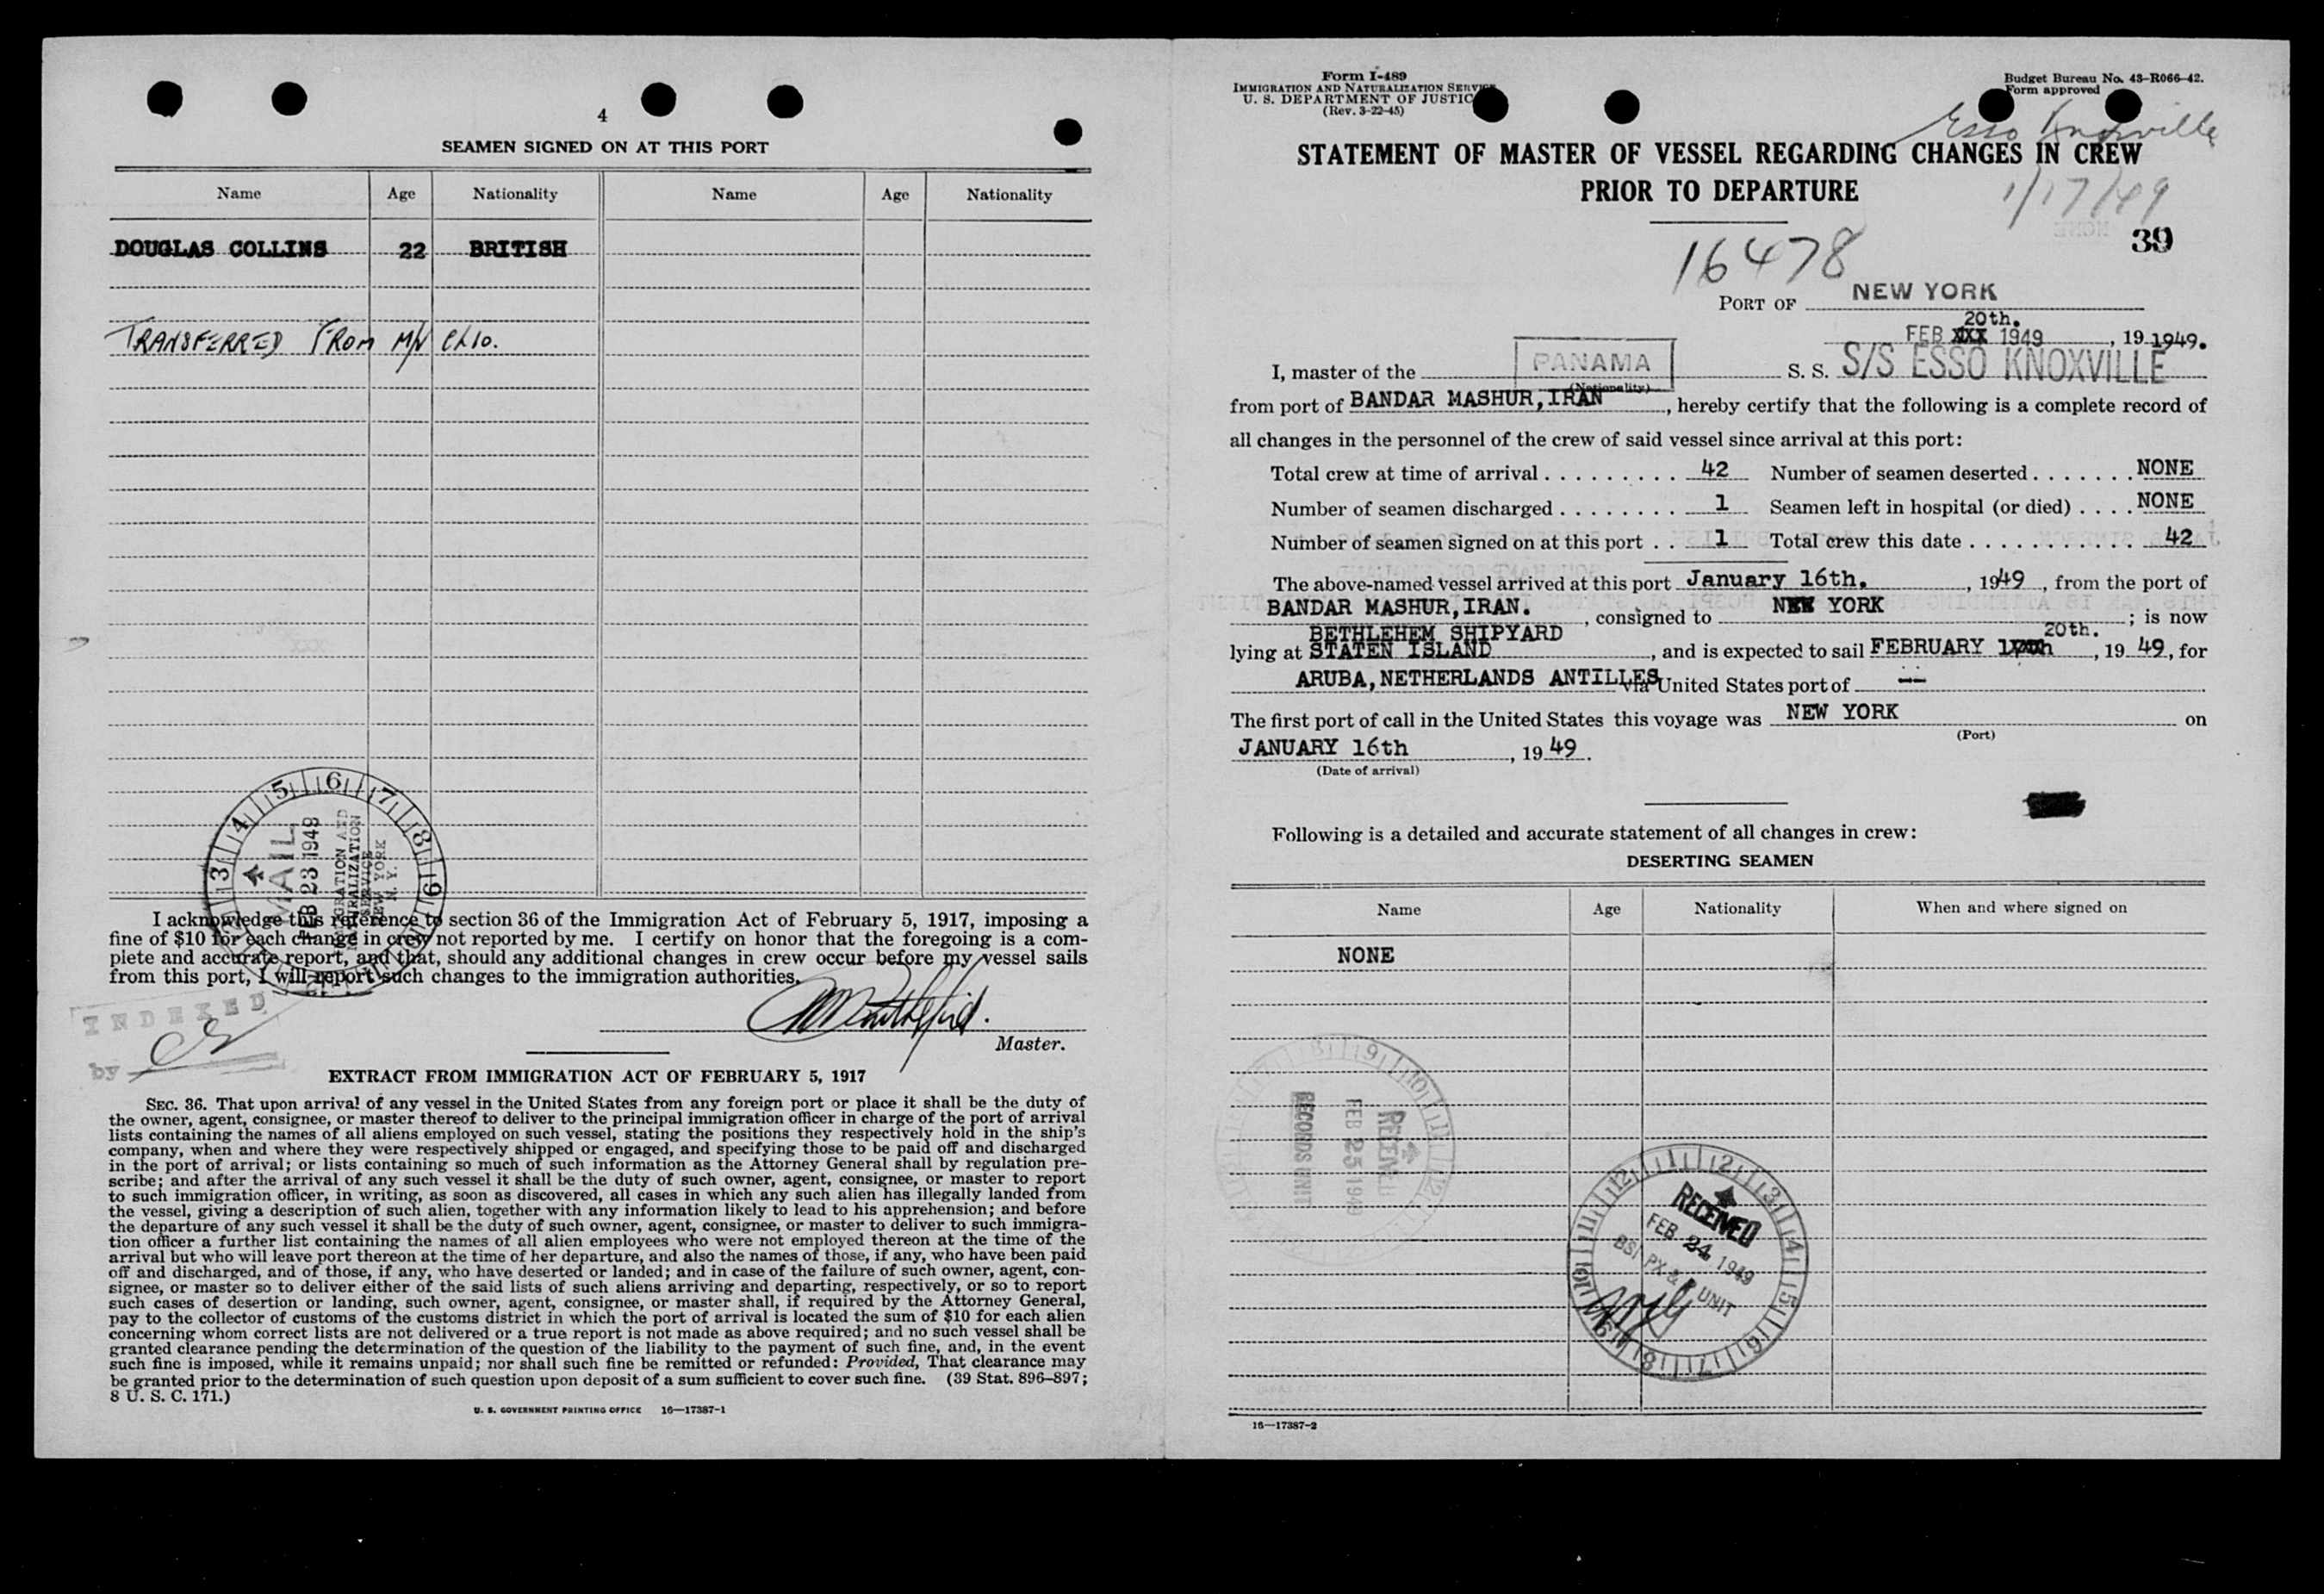 4
SEAMEN SIGNED ON AT THIS PORT
Name Age Nationality Name Age Nationality
DOUGLAS COLLINS 22 BRITISH
TRANSFERRED FROM M/V
MAIL
FEB 23 1949
IMMIGRATION AND
NATURALIZATION
SERVICE
NEW YORK
N. Y.
I acknowledge this reference to section 36 of the Immigration Act of February 5, 1917, imposing a
fine of $10 for each change in crew not reported by me. I certify on honor that the foregoing is a com-
plete and accurate report, and that, should any additional changes in crew occur before my vessel sails
from this port, I will report such changes to the immigration authorities.
INDEXED
by
Master.
EXTRACT FROM IMMIGRATION ACT OF FEBRUARY 5, 1917
SEC. 36. That upon arrival of any vessel in the United States from any foreign port or place it shall be the duty of
the owner, agent, consignee, or master thereof to deliver to the principal immigration officer in charge of the port of arrival
lists containing the names of all aliens employed on such vessel, stating the positions they respectively hold in the ship's
company, when and where they were respectively shipped or engaged, and specifying those to be paid off and discharged
in the port of arrival; or lists containing so much of such information as the Attorney General shall by regulation pre-
scribe; and after the arrival of any such vessel it shall be the duty of such owner, agent, consignee, or master to report
to such immigration officer, in writing, as soon as discovered, all cases in which any such alien has illegally landed from
the vessel, giving a description of such alien, together with any information likely to lead to his apprehension; and before
the departure of any such vessel it shall be the duty of such owner, agent, consignee, or master to deliver to such immigra-
tion officer a further list containing the names of all alien employees who were not employed thereon at the time of the
arrival but who will leave port thereon at the time of her departure, and also the names of those, if any, who have been paid
off and discharged, and of those, if any, who have deserted or landed; and in case of the failure of such owner, agent, con-
signee, or master so to deliver either of the said lists of such aliens arriving and departing, respectively, or so to report
such cases of desertion or landing, such owner, agent, consignee, or master shall, if required by the Attorney General,
pay to the collector of customs of the customs district in which the port of arrival is located the sum of $10 for each alien
concerning whom correct lists are not delivered or a true report is not made as above required; and no such vessel shall be
granted clearance pending the determination of the question of the liability to the payment of such fine, and, in the event
such fine is imposed, while it remains unpaid; nor shall such fine be remitted or refunded: Provided, That clearance may
be granted prior to the determination of such question upon deposit of a sum sufficient to cover such fine. (39 Stat. 896–897;
8 U. S. C. 171.)
U. S. GOVERNMENT PRINTING OFFICE 16—17387-1
Form I-489
IMMIGRATION AND NATURALIZATION SERVICE
U. S. DEPARTMENT OF JUSTIC
(Rev. 3-22-45)
Budget Bureau No. 43-R066-42.
Form approved
Esso Knoxville
STATEMENT OF MASTER OF VESSEL REGARDING CHANGES IN CREW
PRIOR TO DEPARTURE
1/17/49
39
16478
PORT OF NEW YORK
20th.
FEB XXX 1949, 19 1949.
I, master of the PANAMA S. S. S/S ESSO KNOXVILLE
(Nationality)
from port of BANDAR MASHUR, IRAN, hereby certify that the following is a complete record of
all changes in the personnel of the crew of said vessel since arrival at this port:
Total crew at time of arrival 42 Number of seamen deserted NONE
Number of seamen discharged 1 Seamen left in hospital (or died) NONE
Number of seamen signed on at this port 1 Total crew this date 42
The above-named vessel arrived at this port January 16th., 1949, from the port of
BANDAR MASHUR, IRAN., consigned to NEW YORK; is now
BETHLEHEM SHIPYARD 20th.
lying at STATEN ISLAND, and is expected to sail FEBRUARY, 19 49, for
ARUBA, NETHERLANDS ANTILLES via United States port of --
The first port of call in the United States this voyage was NEW YORK on
(Port)
JANUARY 16th, 19 49.
(Date of arrival)
Following is a detailed and accurate statement of all changes in crew:
DESERTING SEAMEN
Name Age Nationality When and where signed on
NONE
RECEIVED
FEB 25 1949
RECORDS UNIT
RECEIVED
FEB 24 1949
BSI PX & P UNIT
16—17387-2